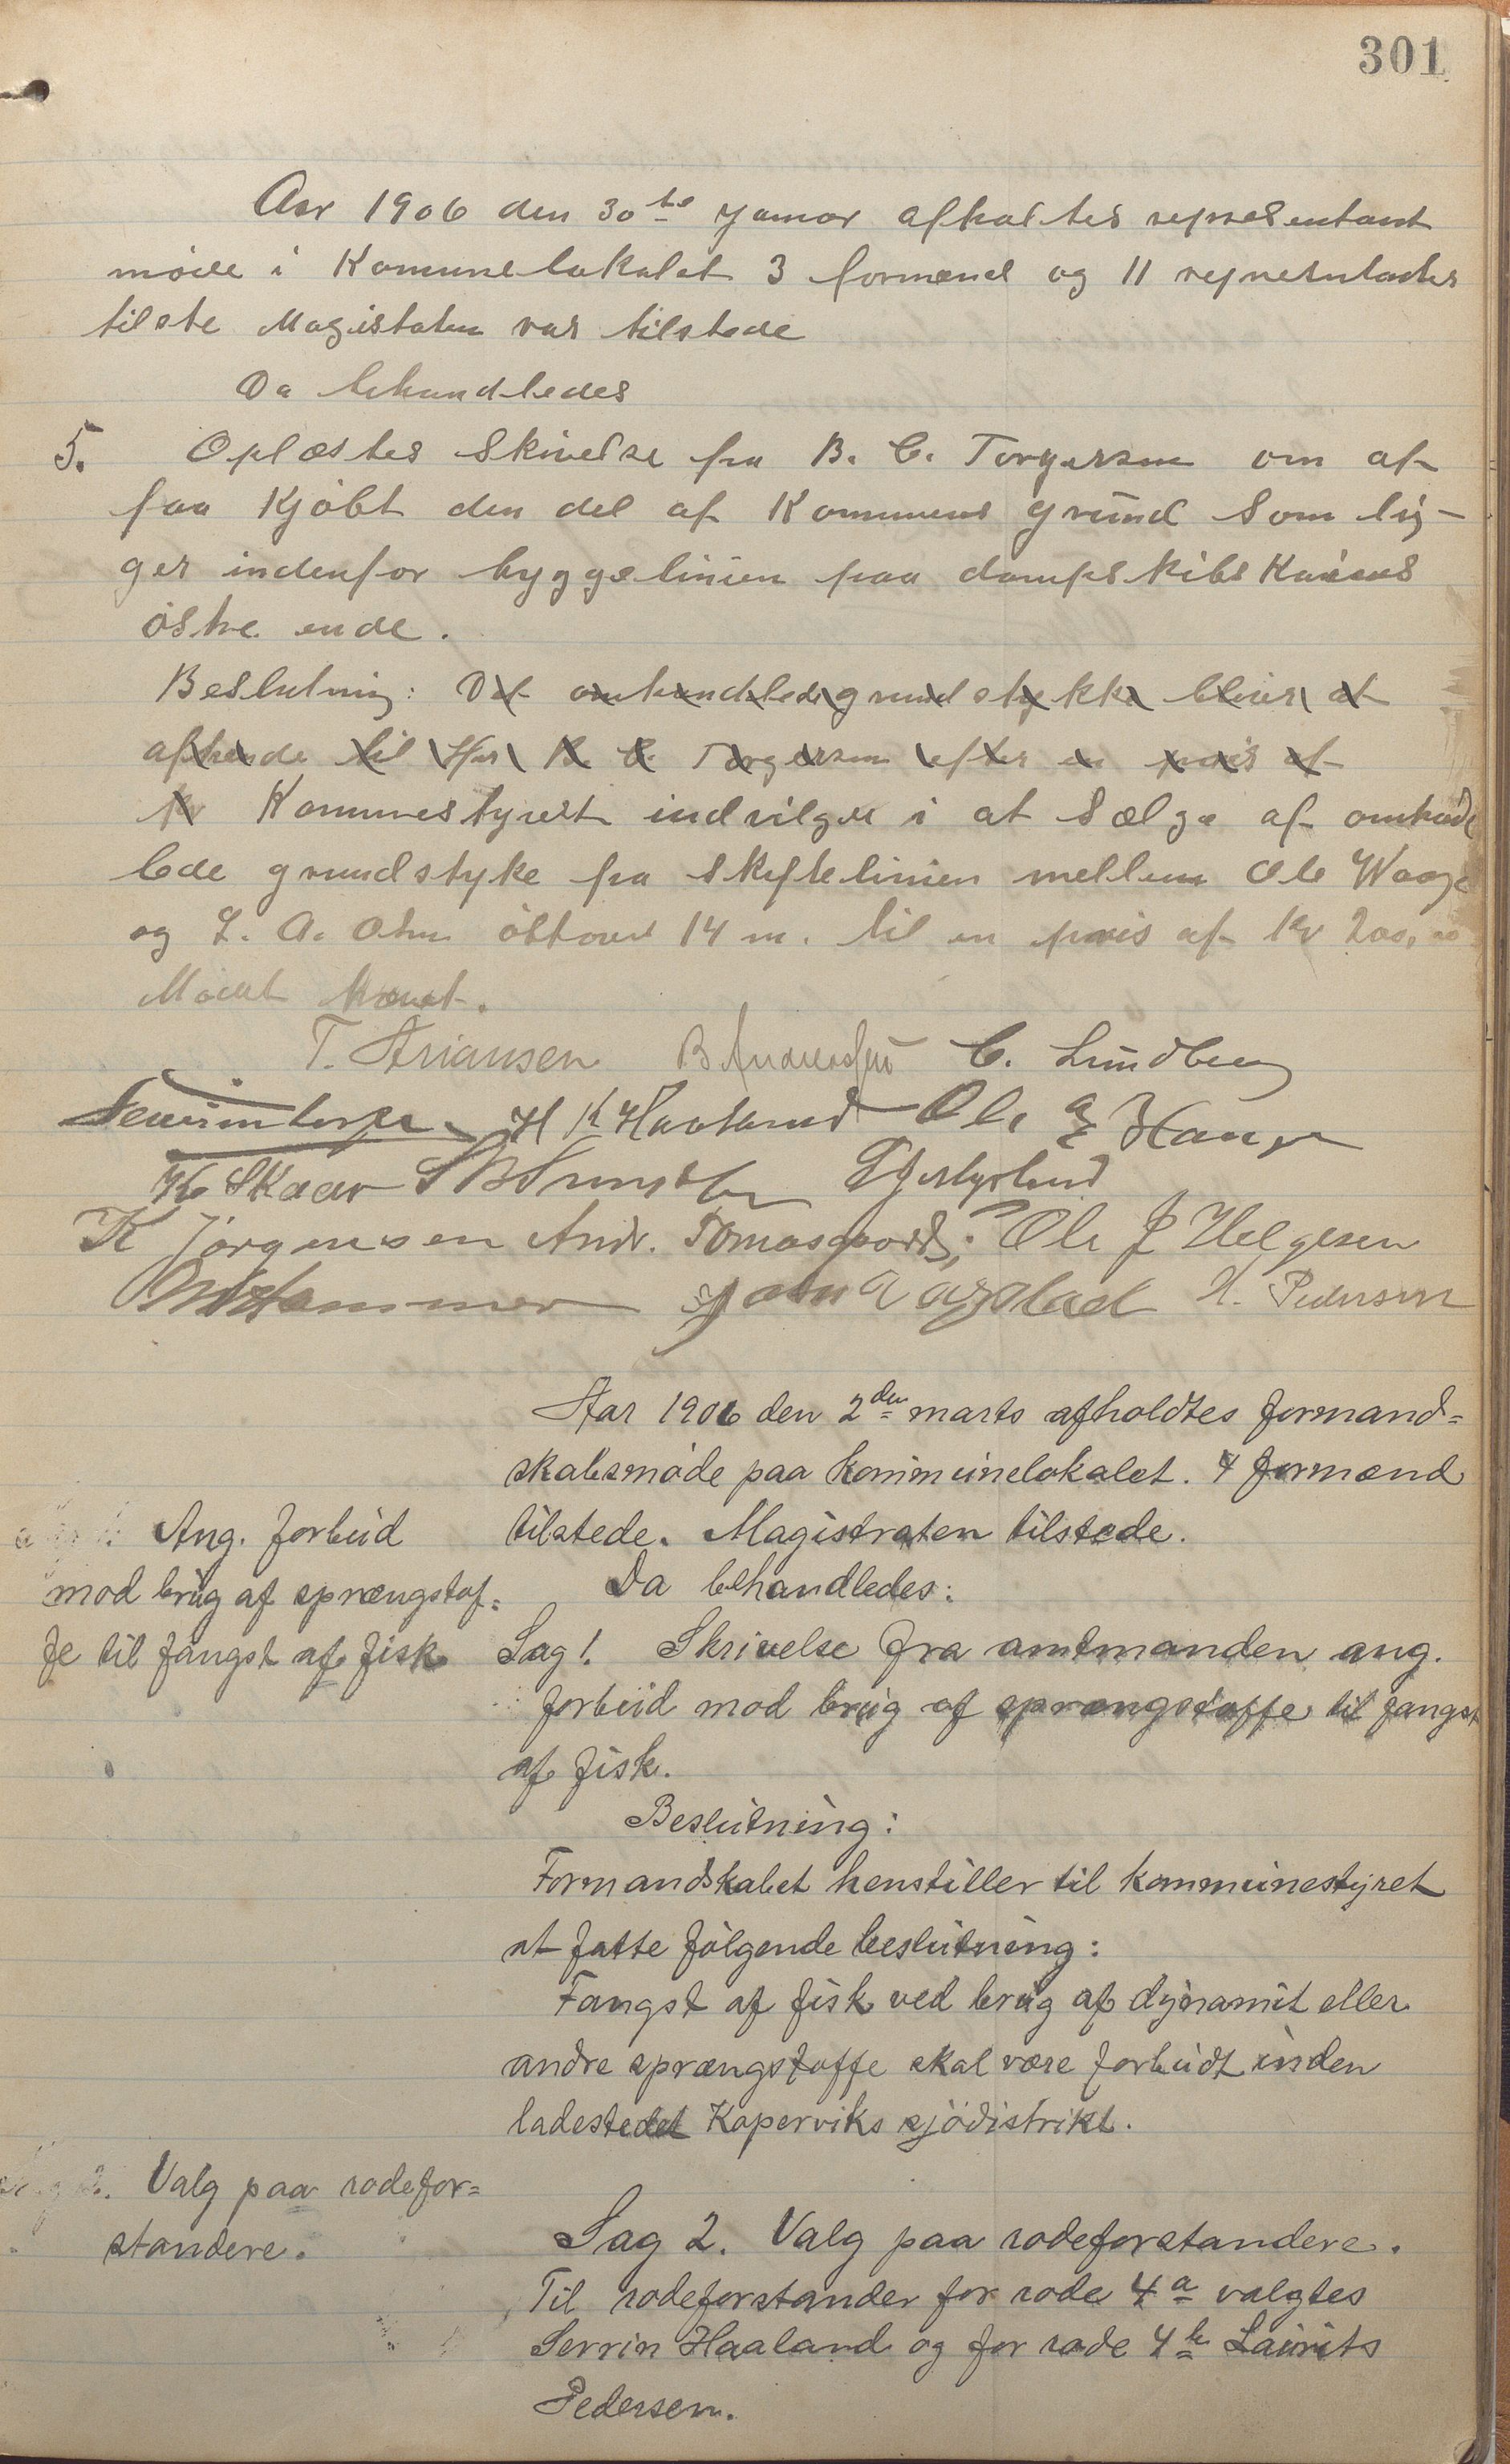 301
Aar 1906 den 30te januar afholdtes representant
møde i Komunelokalet 3 formænd og 11 representanter
tilste Magistaten var tilstede
Da behandledes
5. Oplæstes Skivelse fra B. C. Torgersen om at
faa Kjøbt den del af Kommuens grund som lig-
ger indenfor byggelinien paa dampskibs Kaiens
østre ende.
Beslutning: Det omhandlede grundstykke bliver at
afhende til Her B. C. Torgersen efter en pris af
kr Kommunestyret indvilger i at Sælge af omhand
lede grundstyke fra Skiftelinien mellem Ole Waage
og L. A. Ohm østover 14 m. til en pris af Kr 200,00
Modet hævet.
T. Ariansen B. Andreassen C. Lundberg
H K Haaland Ole E Hauge
K Skaar
K Jørgensen Andr. Tomasgaard. Ole J Helgesen
Hammer John Vagstad H. Pedersen
Aar 1906 den 2den marts afholdtes formand=
skabsmøde paa kommunelokalet. 4 formænd
tilstede. Magistraten tilstede.
Ang. forbud
mod brug af sprængstof=
fe til fangst af fisk
Da behandledes:
Sag 1. Skrivelse fra amtmanden ang.
forbud mod brug af sprængstoffe til fangst
af fisk.
Beslutning:
Formandskabet henstiller til kommunestyret
at fatte følgende beslutning:
Fangst af fisk ved brug af dynamit eller
andre sprængstoffe skal være forbudt inden
ladestedet Koperviks sjødistrikt.
2. Valg paa rodefor=
standere.
Sag 2. Valg paa rodeforstandere.
Til rodeforstander for rode 4a valgtes
Serrin Haaland og for rode 4b Laurits
Pedersen.